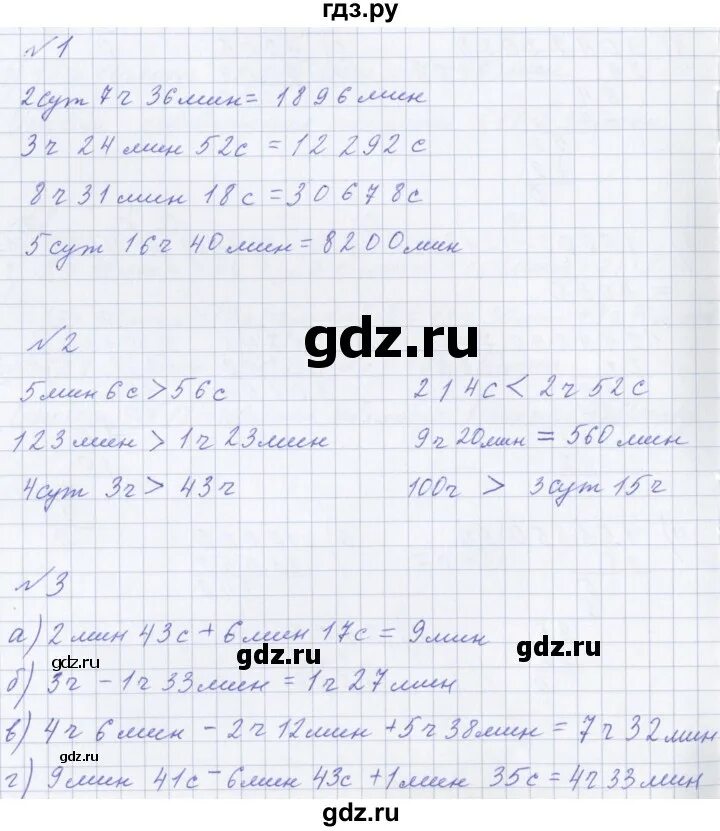 гдз.ру
№1
2сут 7ч 36мин= 1896мин
3ч 24мин 52с =12 292с
8ч31мин 18с =30678с
5сут 16ч 40мин=8200мин
gdz.ru
№2
5мин6с>56с 214с< 2ч52с
123мин > 1ч23мин 9ч20мин = 560мин
4сут 3ч> 43ч 100ч > 3сут15ч
№3
а) 2мин 43с + 6мин 17с = 9мин
gdz.ru gdz.ru gdz.ru
б) 3ч -1ч 33мин = 1ч27мин
в) 4ч 6мин - 2ч12мин +5ч38мин = 7ч32мин
gdz.ru
г) 9мин 41с-6мин 43с +1мин 35с=4ч33мин
gdz.ru